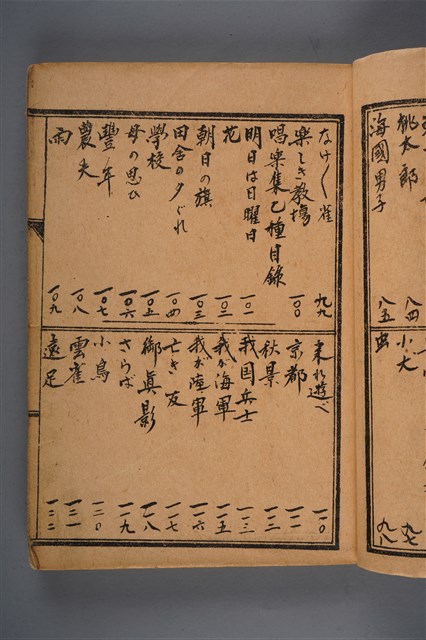 桃太郎 八四
海國男子 八五
小犬 九七
虫 九八
なけ〱雀 九九
楽しき教場 一〇〇
唱楽集乙種目錄
明日は日曜日 一〇一
花 一〇二
朝日の旗 一〇三
田舎の夕ぐれ 一〇四
學校 一〇五
母の思ひ 一〇六
豐年 一〇七
農夫 一〇八
雨 一〇九
来れ遊べ 一一〇
京都 一一一
秋景 一一二
我国兵士 一一三
我が海軍 一一五
我が陸軍 一一六
亡き友 一一七
御眞影 一一八
さらば 一一九
小鳥 一二〇
雲雀 一二一
遠足 一二二